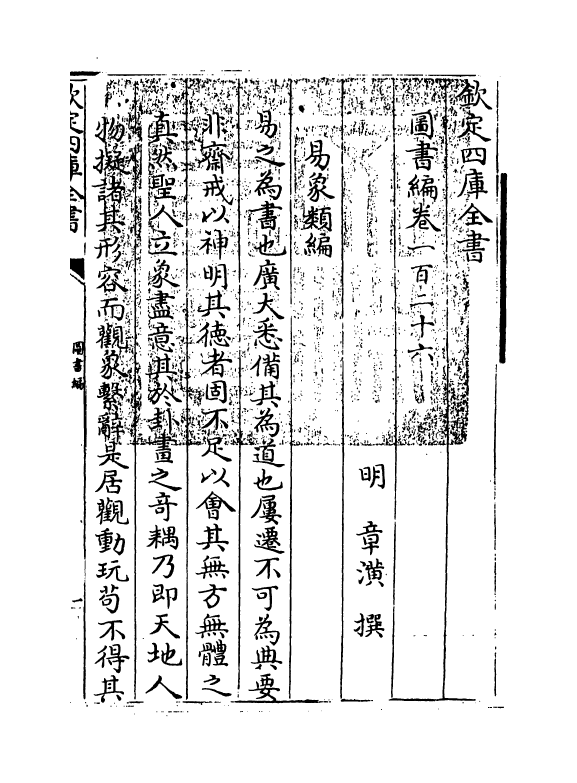 欽定四庫全書
圖書編卷一百二十六
明 章潢 撰
易象類編
易之為書也廣大悉備其為道也屢遷不可為典要
非齋戒以神明其徳者固不足以會其無方無體之
真然聖人立象盡意其於卦畫之竒耦乃即天地人
物擬諸其形容而觀象繫辭是居觀動玩茍不得其
欽定四庫全書
圖書編
一